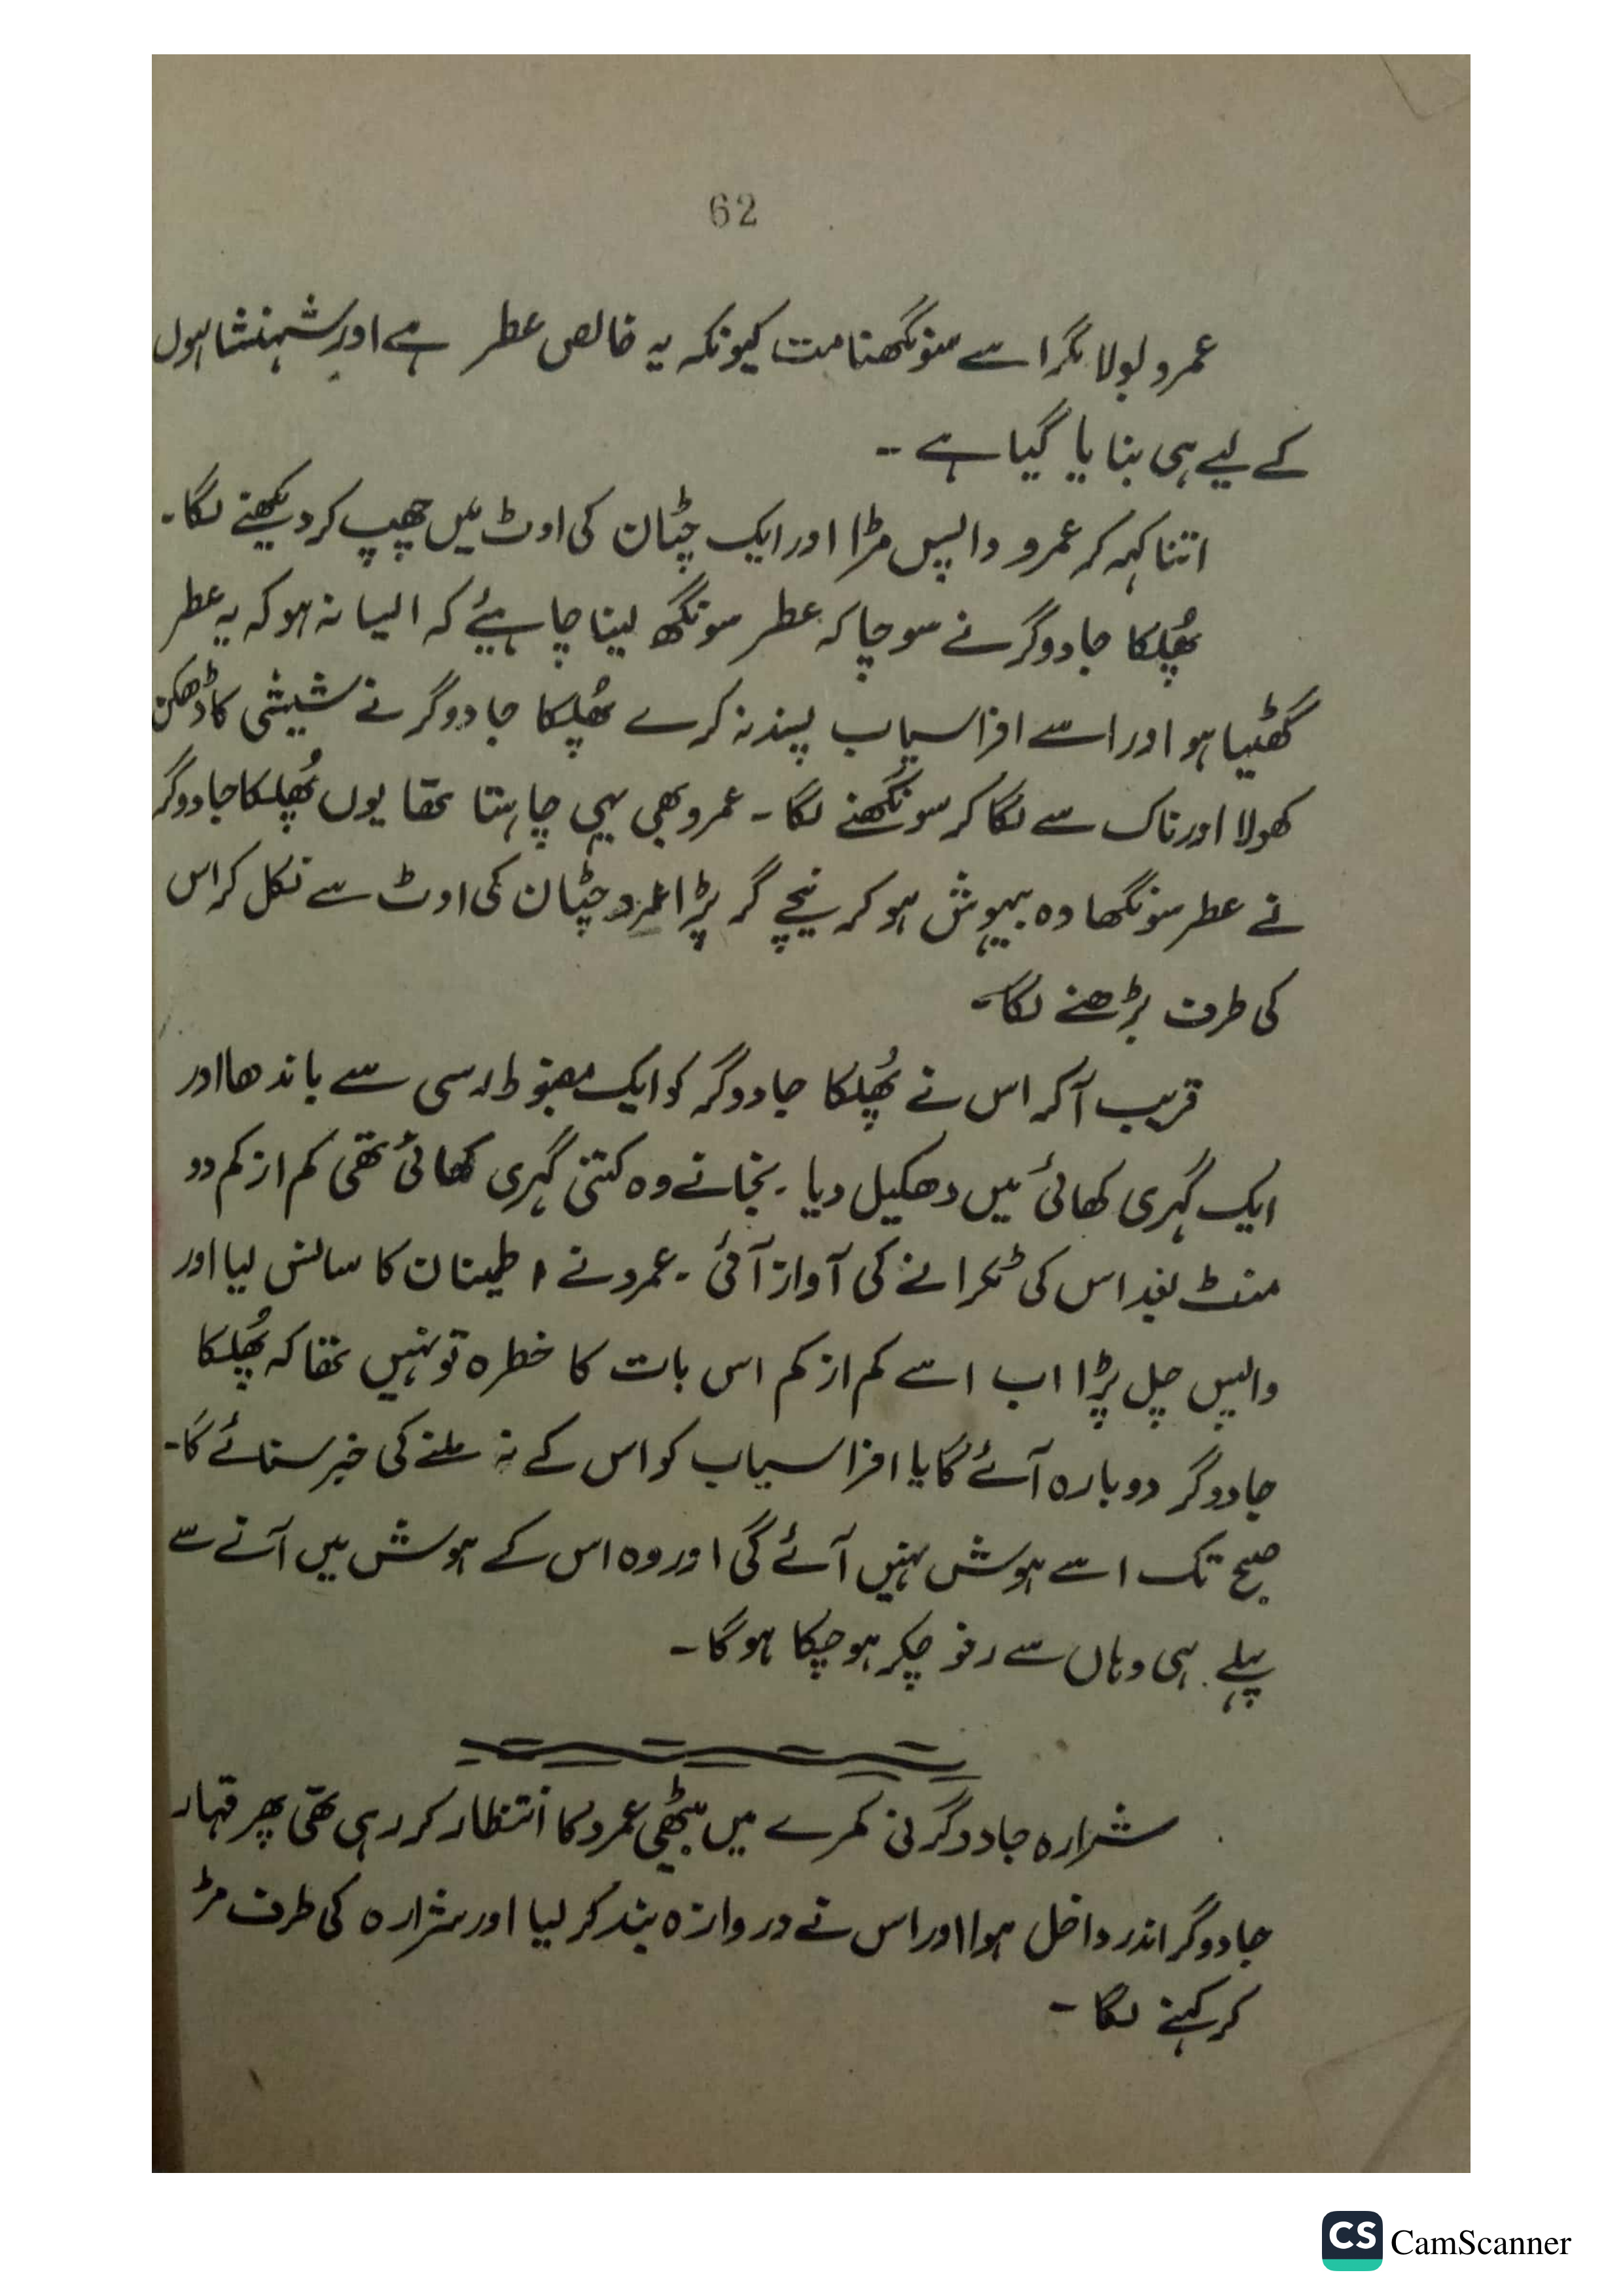 62
عمرو بولا مگر اسے سونگھنا مت کیونکہ یہ خالص عطر ہے اور شہنشاہوں
کے لیے ہی بنایا گیا ہے ۔۔
اتنا کہہ کر عمرو واپس مڑا اور ایک چٹان کی اوٹ میں چھپ کر دیکھنے لگا۔
پھُلکا جادوگر نے سوچا کہ عطر سونگھ لینا چاہیئے کہ ایسا نہ ہو کہ یہ عطر
گھٹیا ہو اور اسے افراسیاب پسند نہ کرے پھُلکا جادوگر نے شیشی کا ڈھکن
کھولا اور ناک سے لگا کر سونگھنے لگا ۔ عمرو بھی یہی چاہتا تھا یوں پھُلکا جادوگر
نے عطر سونگھا وہ بیہوش ہو کر نیچے گر پڑا عمرو چٹان کی اوٹ سے نکل کر اس
کی طرف بڑھنے لگا۔
قریب آ کر اس نے پھُلکا جادوگر کو ایک مضبوط رسی سے باندھا اور
ایک گہری کھائی میں دھکیل دیا ۔ نجانے وہ کتنی گہری کھائی تھی کم از کم دو
منٹ بعد اس کی ٹکرانے کی آواز آئی ۔ عمرو نے اطمینان کا سانس لیا اور
واپس چل پڑا اب اسے کم از کم اس بات کا خطرہ تو نہیں تھا کہ پھُلکا
جادوگر دوبارہ آئے گا یا افراسیاب کو اس کے نہ ملنے کی خبر سنائے گا۔
صبح تک اسے ہوش نہیں آئے گی اور وہ اس کے ہوش میں آنے سے
پہلے ہی وہاں سے رفو چکر ہو چکا ہو گا ۔
شرارہ جادوگرنی کمرے میں بیٹھی عمرو کا انتظار کر رہی تھی پھر قہار
جادوگر اندر داخل ہوا اور اس نے دروازہ بند کر لیا اور شرارہ کی طرف مڑ
کر کہنے لگا ۔
CS CamScanner